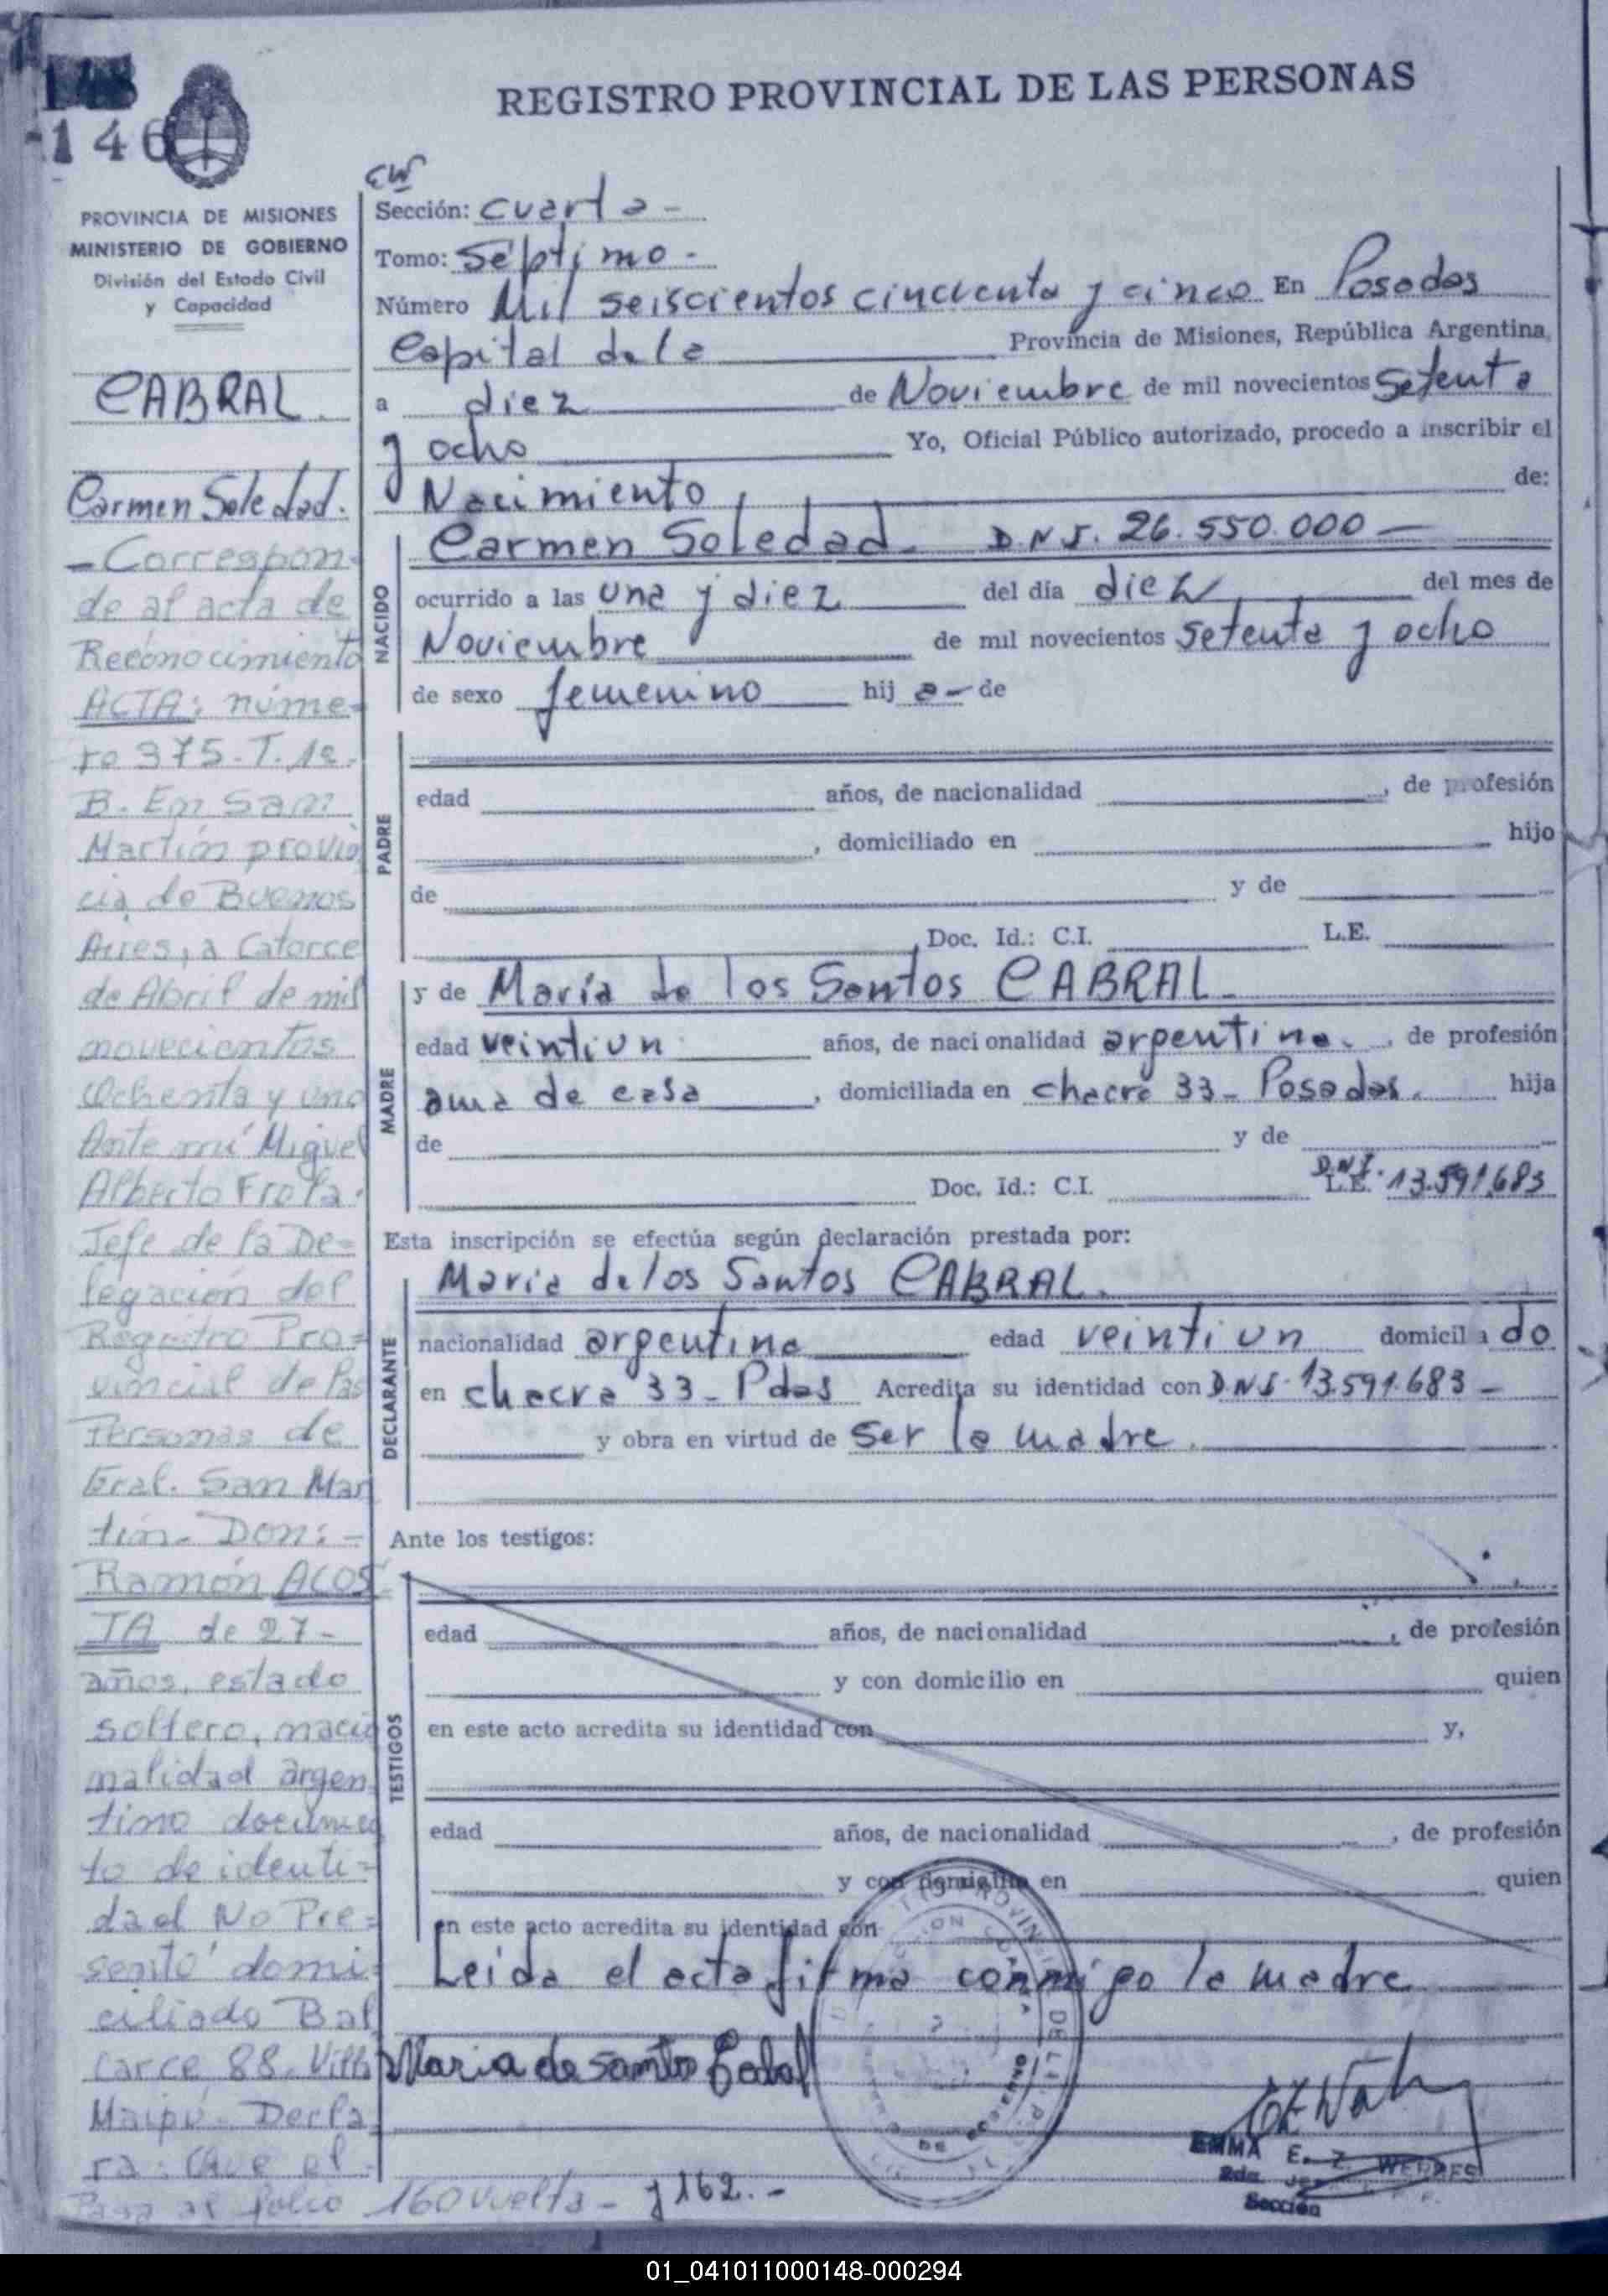 148
146
REGISTRO PROVINCIAL DE LAS PERSONAS
PROVINCIA DE MISIONES
MINISTERIO DE GOBIERNO
División del Estado Civil
y Capacidad
CABRAL.
Carmen Soledad.
- Correspon-
de al acta de
Reconocimiento
ACTA: núme-
ro 375-T. 1º.
B. En San
Martín provin
cia de Buenos
Aires, a Catorce
de Abril de mil
novecientos
Ochenta y uno
Ante mí Miguel
Alberto Frola.
Jefe de la De-
legación del
Registro Pro=
vincial de las
Personas de
Gral. San Mar
tín- Don: -
Ramón ACOS
TA de 27-
años, estado
soltero, nacio
nalidad argen
tino documen
to de identi-
dad No Pre=
sentó domi-
ciliado Bal
carce 88. Villa
Maipú- Decla
ra: Que el
Pasa al folio 160 vuelta - y 162.-
Sección: cuarta-
Tomo: Séptimo-
Número Mil seiscientos cincuenta y cinco En Posadas
Capital de la Provincia de Misiones, República Argentina,
a diez de Noviembre de mil novecientos setenta
y ocho Yo, Oficial Público autorizado, procedo a inscribir el
Nacimiento de:
NACIDO
Carmen Soledad- D.N.I. 26.550.000-
ocurrido a las una y diez del día diez del mes de
Noviembre de mil novecientos setenta y ocho
de sexo femenino hij a- de
PADRE
edad años, de nacionalidad , de profesión
, domiciliado en hijo
de y de
Doc. Id.: C.I. L.E.
MADRE
y de María de los Santos CABRAL-
edad veintiun años, de nacionalidad argentina. , de profesión
ama de casa , domiciliada en chacra 33- Posadas. hija
de y de
Doc. Id.: C.I. L.E. D.N.I. 13.591.683
Esta inscripción se efectúa según declaración prestada por:
DECLARANTE
María de los Santos CABRAL.
nacionalidad argentina edad veintiun domicil i a do
en chacra 33- Pdas Acredita su identidad con D.N.I. 13.591.683-
y obra en virtud de ser la madre.
Ante los testigos:
TESTIGOS
edad años, de nacionalidad , de profesión
y con domicilio en quien
en este acto acredita su identidad con y,
edad años, de nacionalidad , de profesión
y con domicilio en quien
en este acto acredita su identidad con
Leida el acta firma conmigo la madre
Maria de santo Cabral
EMMA E. Z. WERRES
2da.
Sección
01_041011000148-000294